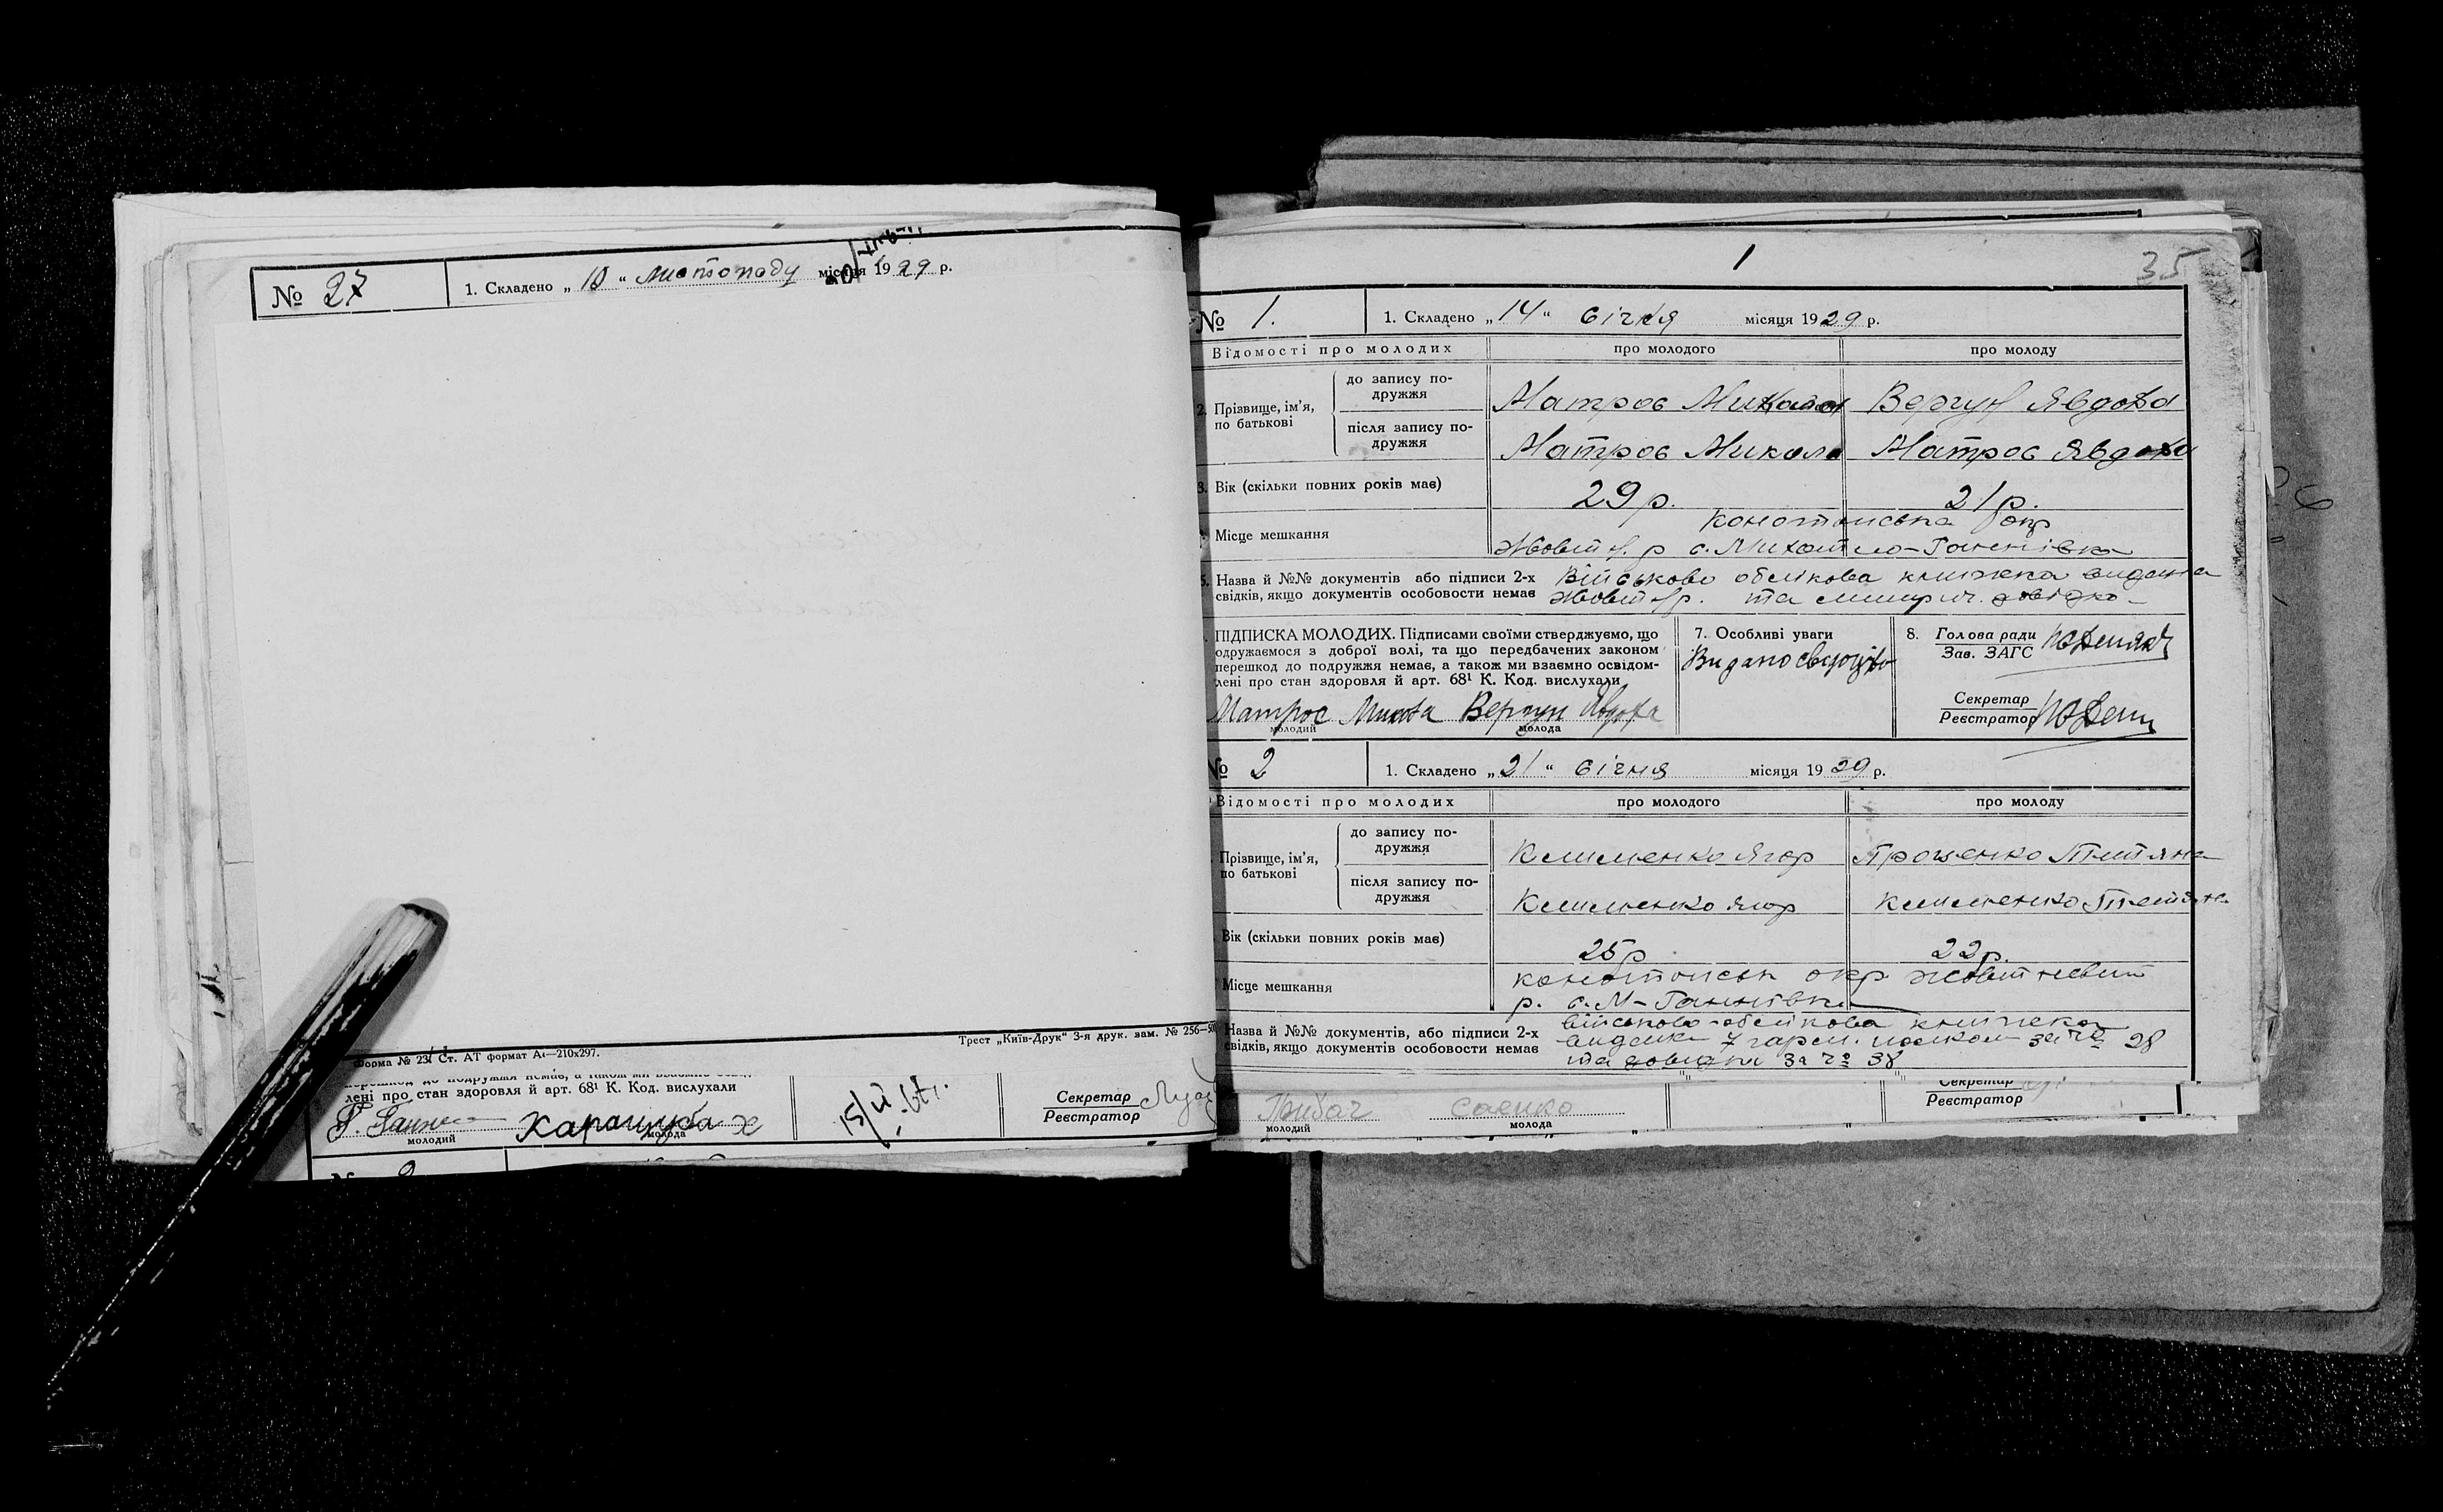 № 27
1. Складено „ 10 “ листопаду місяця 1929 р.
Форма № 23. Ст. АТ формат А4—210х297.
Трест „Київ-Друк“ 3-я друк. зам. № 256—50
лені про стан здоровля й арт. 68¹ К. Код. вислухали
молодий
молода
Секретар
Реєстратор
1
35
№ 1.
1. Складено „ 14 “ січня місяця 1929 р.
Відомості про молодих
про молодого
про молоду
2. Прізвище, ім’я, по батькові
до запису подружжя
Матрос Микола
Вергун Явдоха
після запису подружжя
Матрос Микола
Матрос Явдоха
3. Вік (скільки повних років має)
29 р.
21 р.
Місце мешкання
Конотопська окр
Жовтн. р с. Михайло-Ганнівка
5. Назва й №№ документів або підписи 2-х
свідків, якщо документів особовости немає
Військово облікова книжка видана
Жовтн р. та довідка
ПІДПИСКА МОЛОДИХ. Підписами своїми стверджуємо, що
одружаємося з доброї волі, та що передбачених законом
перешкод до подружжя немає, а також ми взаємно освідом-
лені про стан здоровля й арт. 68¹ К. Код. вислухали
Матрос Микола Вергун Явдоха
молодий
молода
7. Особливі уваги
Видано свідоцтво
8. Голова ради
Зав. ЗАГС
Секретар
Реєстратор
№ 2
1. Складено „ 21 “ січня місяця 1929 р.
Відомості про молодих
про молодого
про молоду
Прізвище, ім’я,
по батькові
до запису по-
дружжя
Клименко Ягор
Ярошенко Титяна
після запису по-
дружжя
Клименко Ягор
Клименко Тетяна
Вік (скільки повних років має)
25 р
22 р.
Місце мешкання
Конотопськ окр Жовтневий
р. с. М-Ганнівка
Назва й №№ документів, або підписи 2-х
свідків, якщо документів особовости немає
військово-облікова книжка
видана 7 полком за № 28
та довідки за № 38
Грибач
Саенко
молодий
молода
Секретар
Реєстратор